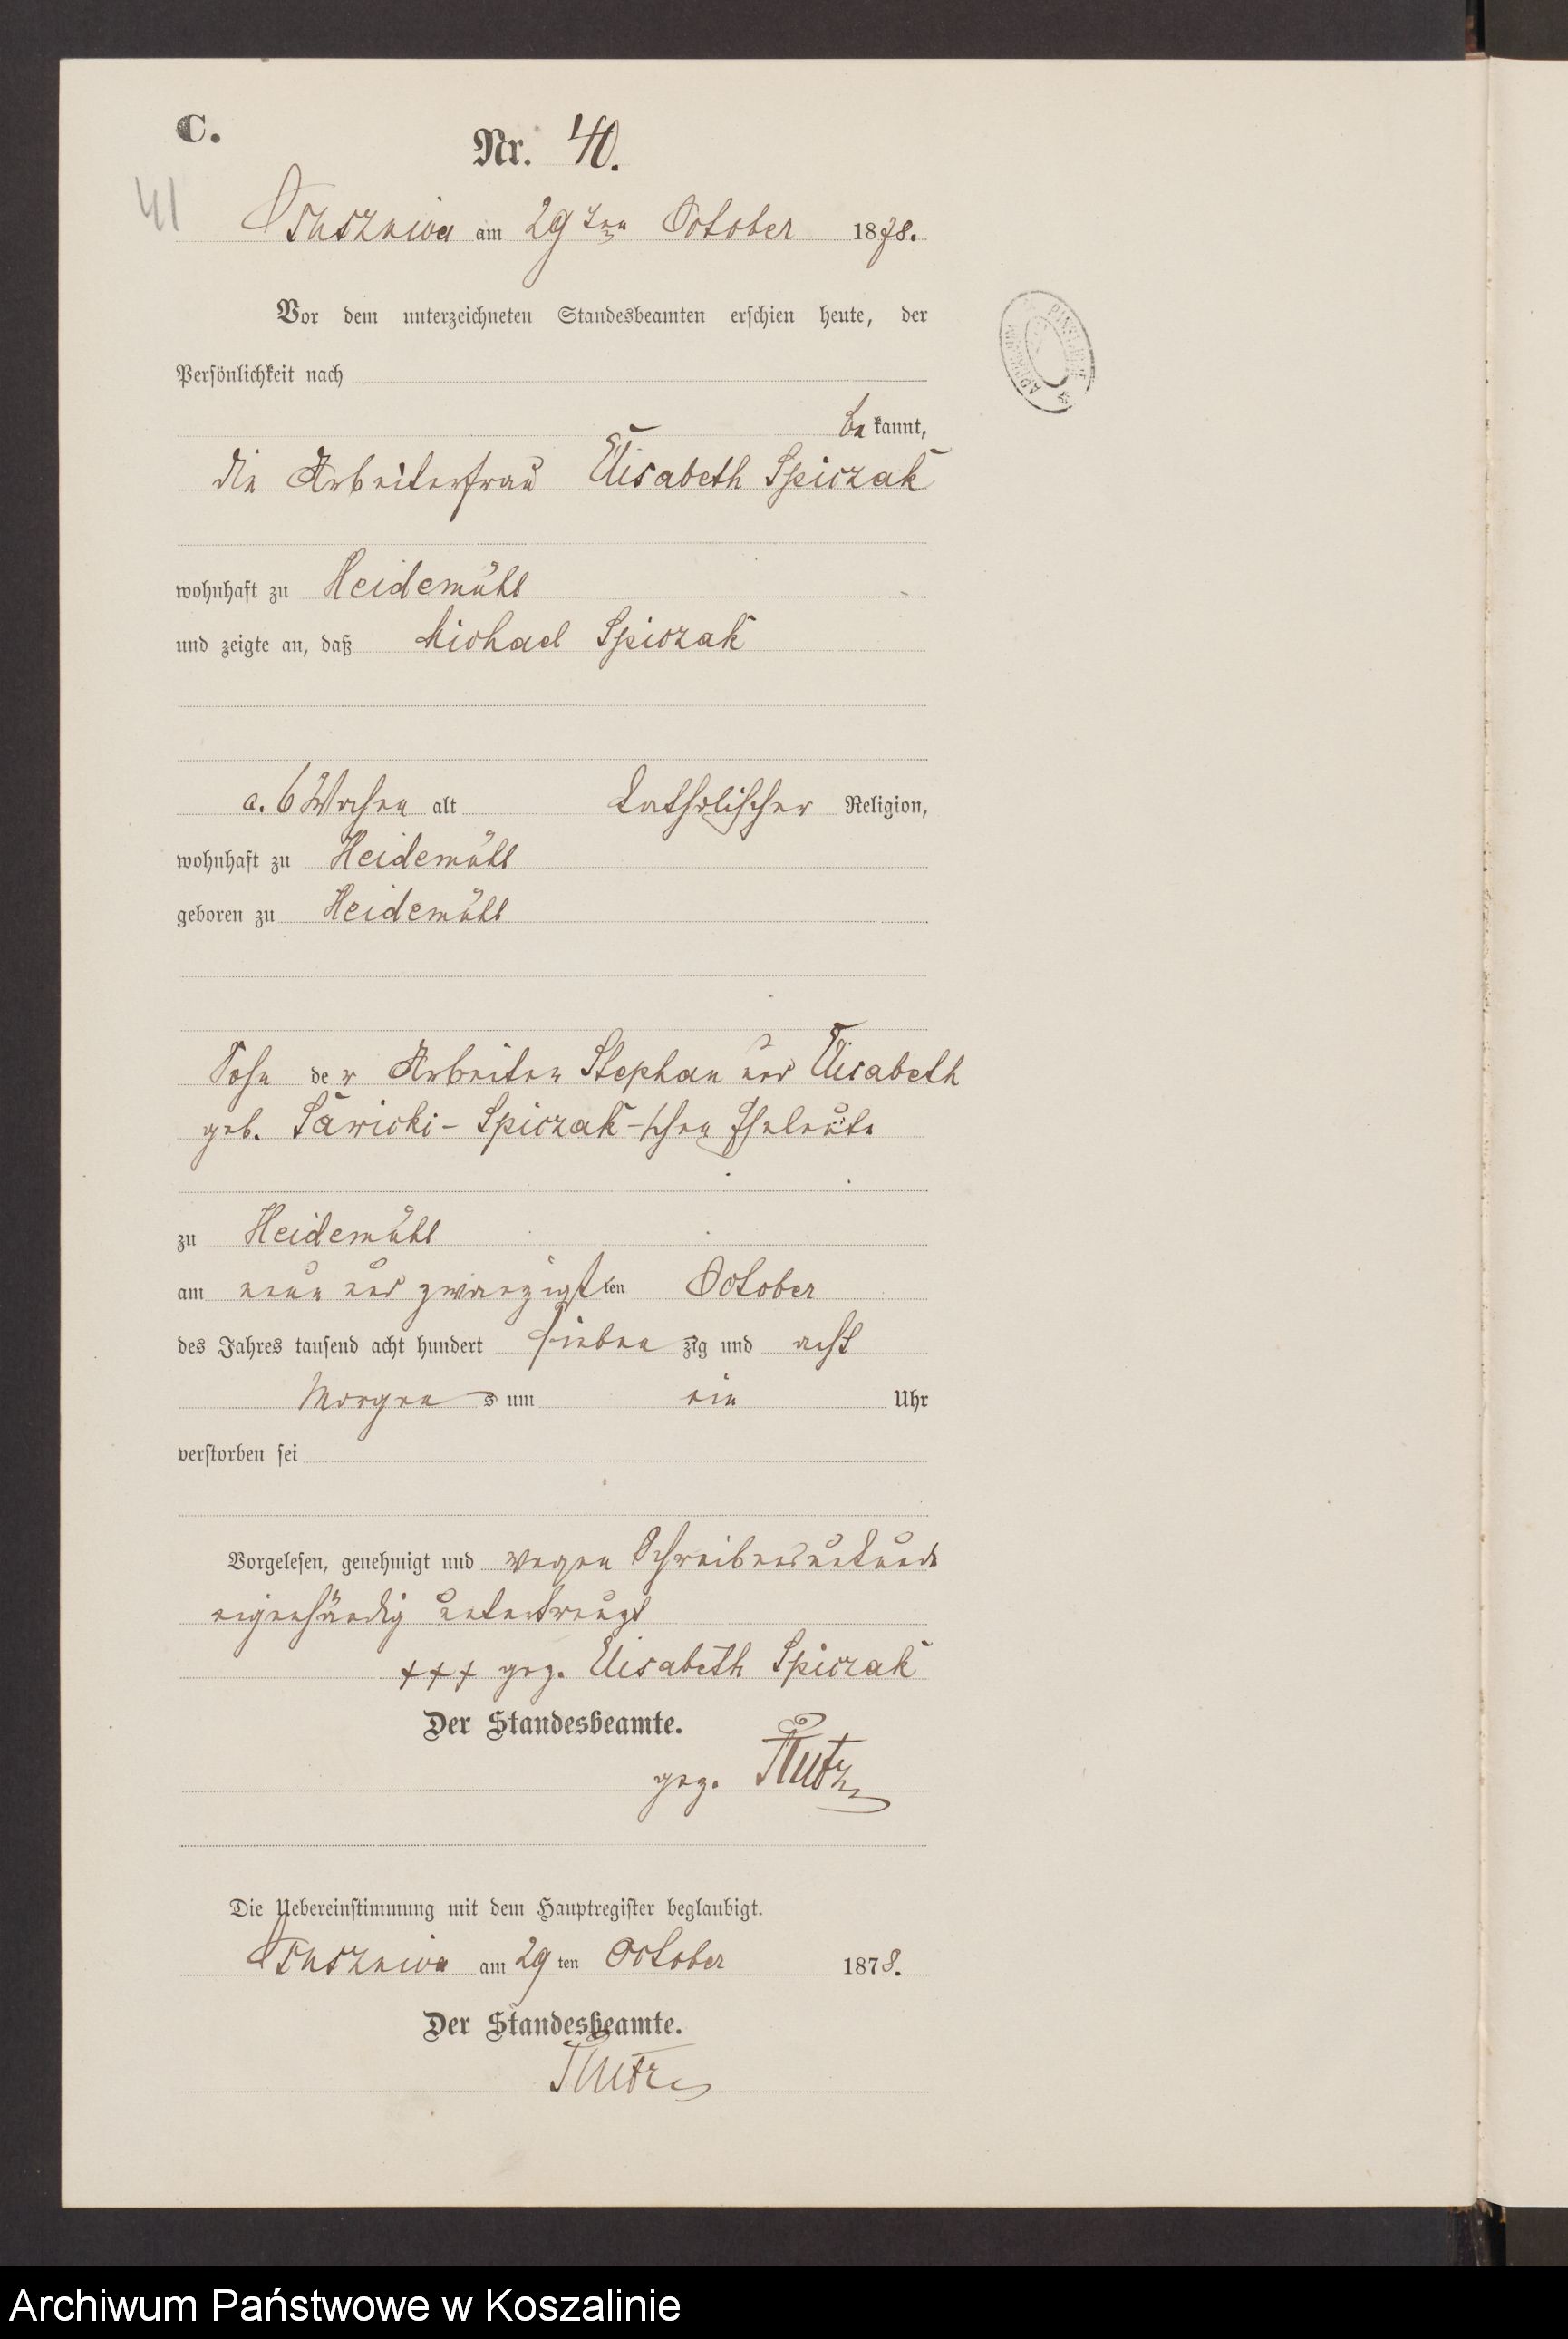 C.
Nr. 40.
41
Osusznica am 29ten October 1878.
Vor dem unterzeichneten Standesbeamten erschien heute, der
Persönlichkeit nach
bekannt,
die Arbeiterfrau Elisabeth Spiczak
wohnhaft zu Heidemühl
und zeigte an, daß Michael Spiczak
a. 6 Wochen alt katholischer Religion,
wohnhaft zu Heidemühl
geboren zu Heidemühl
Sohn der Arbeiter Stephan und Elisabeth
geb. Sawicki-Spiczak-schen Eheleute
zu Heidemühl
am neun und zwanzigsten October
des Jahres tausend acht hundert siebenzig und acht
Morgens um ein Uhr
verstorben sei
Vorgelesen, genehmigt und wegen Schreibensunkunde
eigenhändig unterkreuzt
+++ gez. Elisabeth Spiczak
Der Standesbeamte.
gez.
Die Uebereinstimmung mit dem Hauptregister beglaubigt.
Osusznica am 29ten October 1878.
Der Standesbeamte.
Archiwum Państwowe w Koszalinie